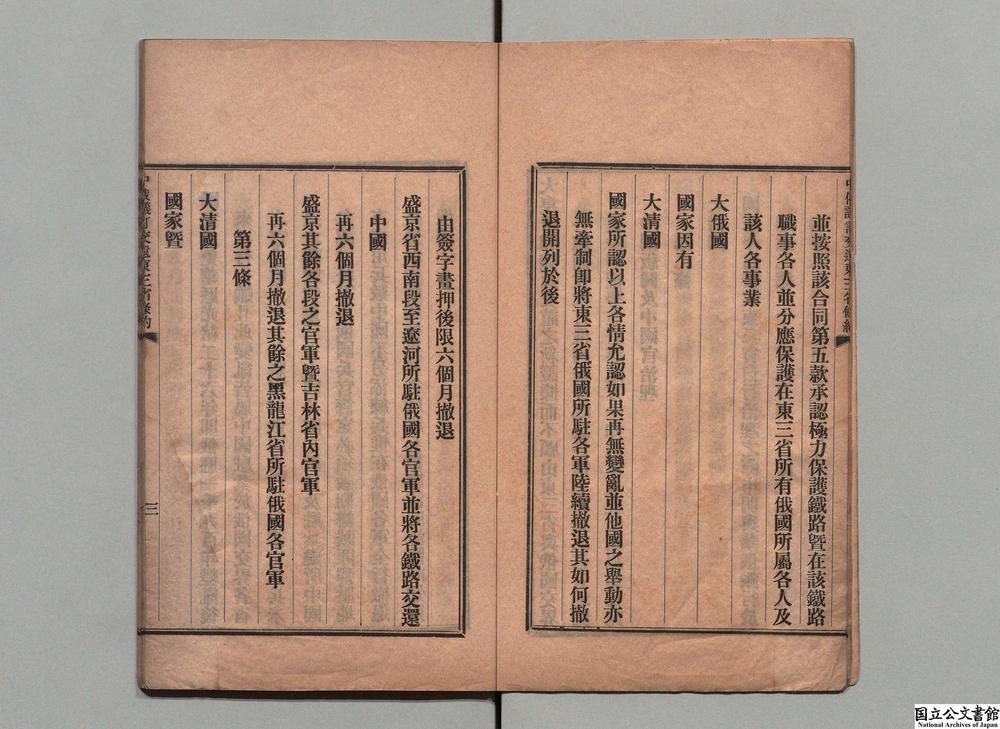 並按照該合同第五款承認極力保護鐵路暨在該鐵路
職事各人並分應保護在東三省所有俄國所屬各人及
該人各事業
大俄國
國家因有
大清國
國家所認以上各情允認如果再無變亂並他國之舉動亦
無牽制卽將東三省俄國所駐各軍陸續撤退其如何撤
退開列於後
由簽字畫押後限六個月撤退
盛京省西南段至遼河所駐俄國各官軍並將各鐵路交還
中國
再六個月撤退
盛京其餘各段之官軍暨吉林省內官軍
再六個月撤退其餘之黑龍江省所駐俄國各官軍
第三條
大清國
國家暨
三
国立公文書館
National Archives of Japan